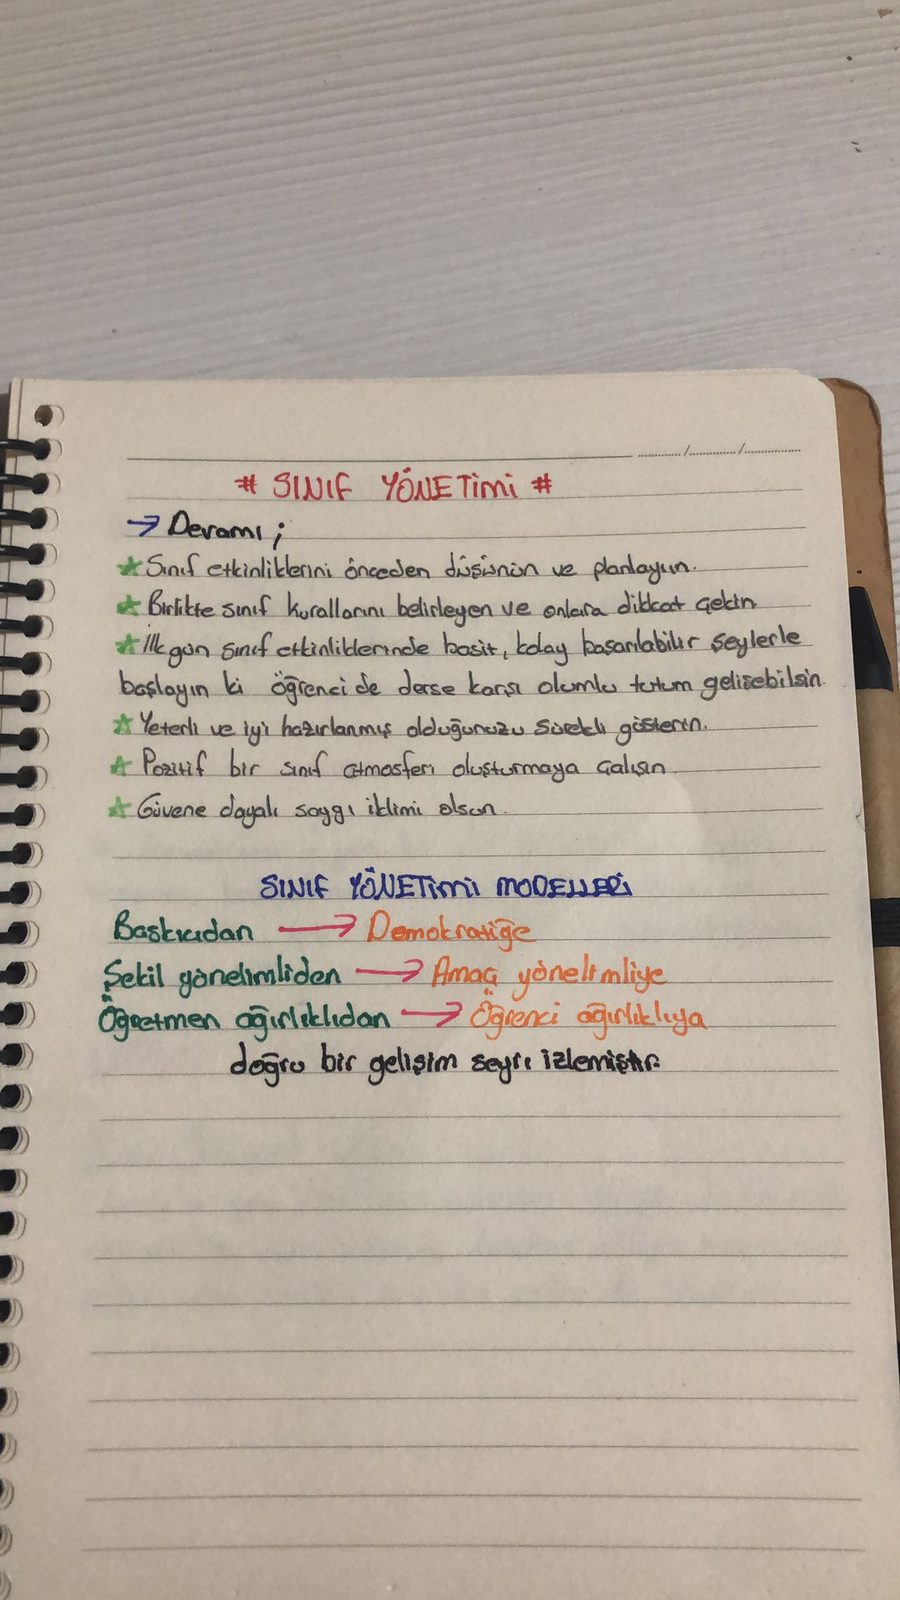 # SINIF YÖNETİMİ #
→ Devamı ;
★ Sınıf etkinliklerini önceden düşünün ve planlayın.
★ Birlikte sınıf kurallarını belirleyen ve onlara dikkat çekin
★ İlk gün sınıf etkinliklerinde basit, kolay başarılabilir şeylerle
başlayın ki öğrenci de derse karşı olumlu tutum gelişebilsin
★ Yeterli ve iyi hazırlanmış olduğunuzu sürekli gösterin.
★ Pozitif bir sınıf atmosferi oluşturmaya çalışın
★ Güvene dayalı saygı iklimi olsun.
SINIF YÖNETİMİ MODELLERİ
Baskıcıdan → Demokratiğe
Şekil yönelimliden → Amaç yönelimliye
Öğretmen ağırlıklıdan → Öğrenci ağırlıklıya
doğru bir gelişim seyri izlemiştir.